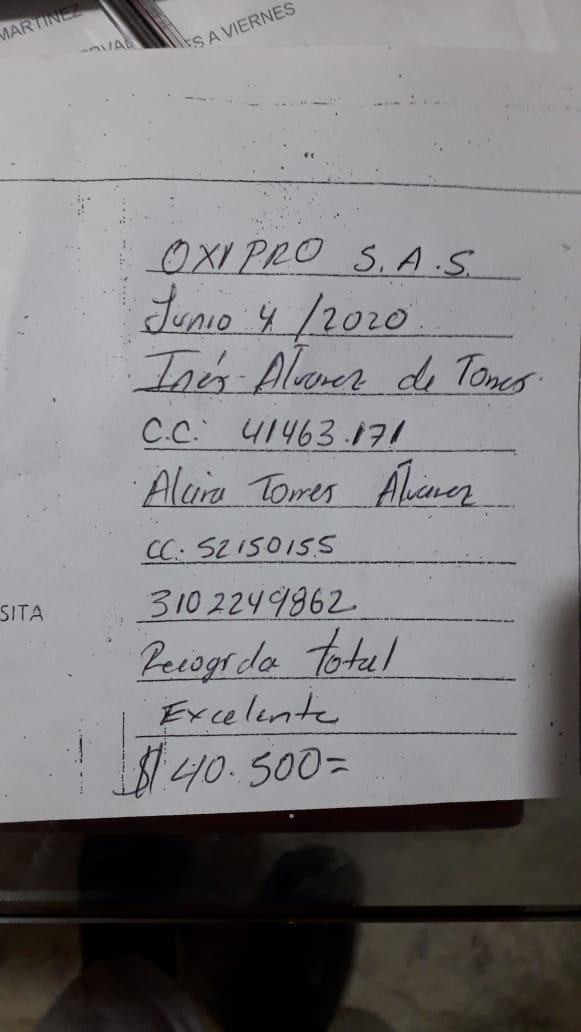 MARTINEZ
ES A VIERNES
OXIPRO S.A.S.
Junio 4/2020
Inés Alvarez de Torres.
C.C. 41463.171
Alcira Torres Álvarez
CC. 52150155
3102249862
SITA
Recogida total
Excelente
$ 40.500=